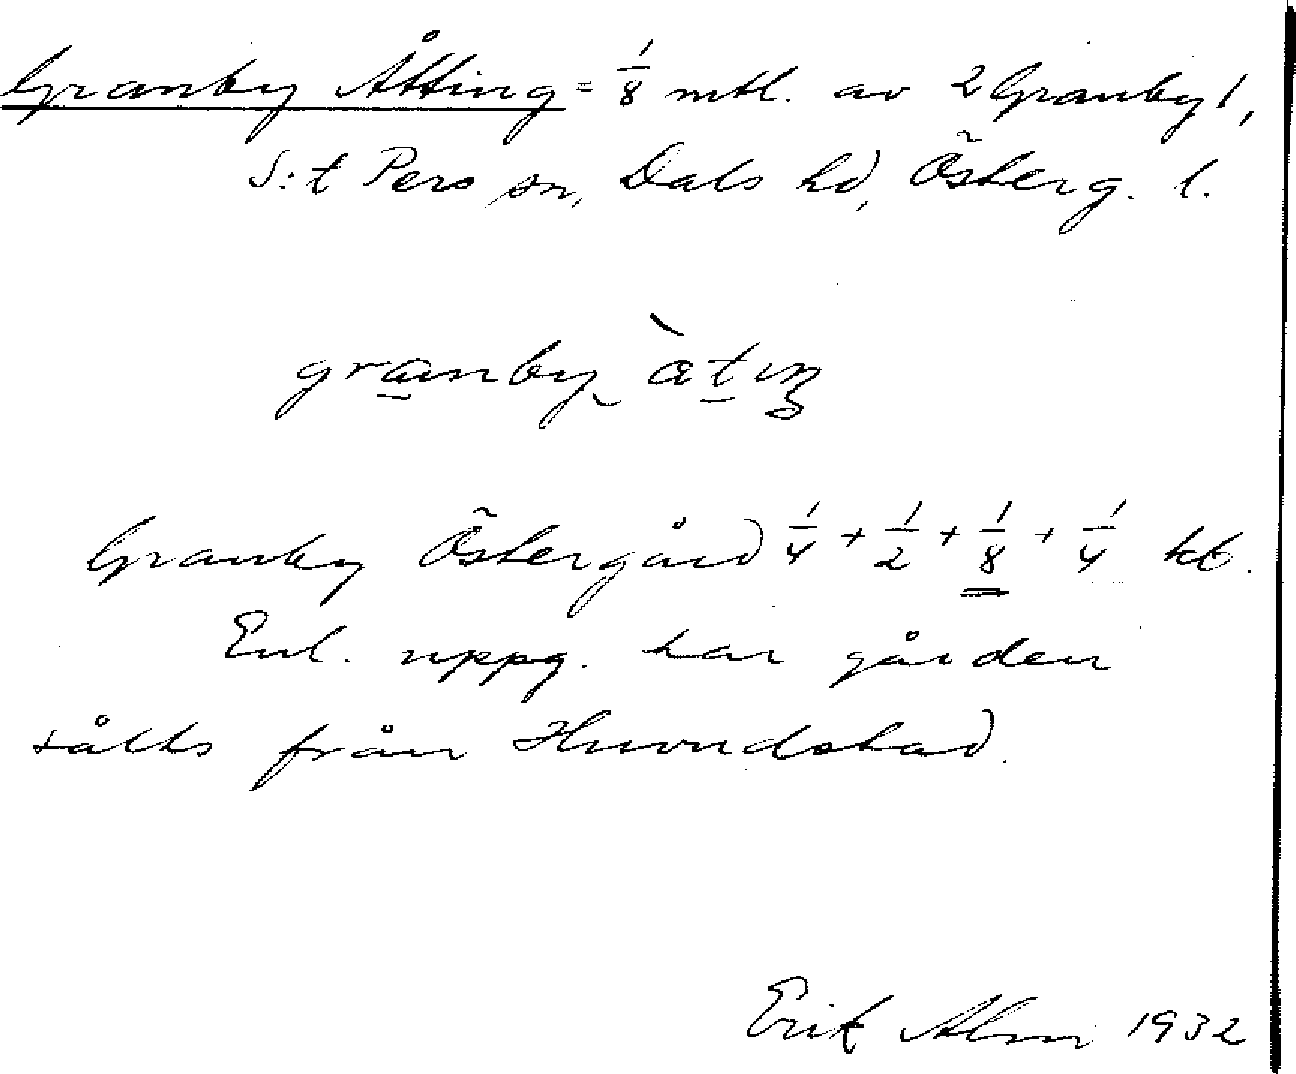 Granby Åtting = 1/8 mtl. av 2 Granby 1,
S:t Pers sn, Dals hd, Österg. l.
granby
Granby Östergård 1/4 + 1/2 + 1/8 + 1/4 kt.
Enl. uppg. har gården
sålts från Huvudstad.
Erik Alm 1932